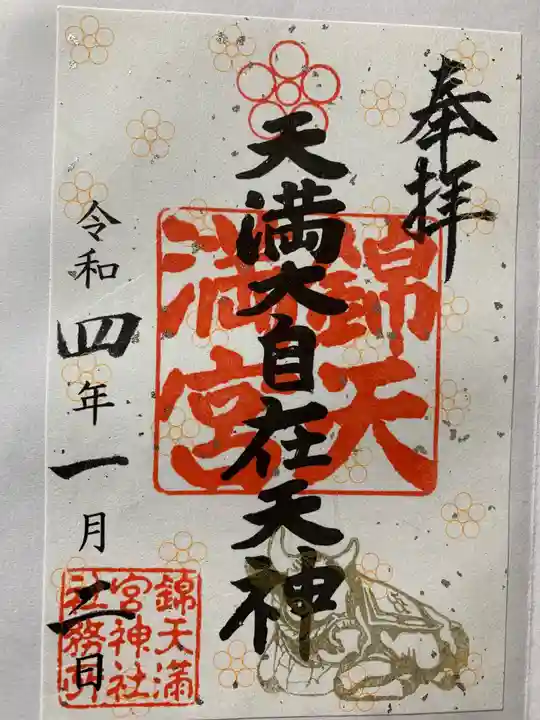 奉拝
天満大自在天神
錦天
満宮
令和四年一月二日
錦天満
宮神社
社務所